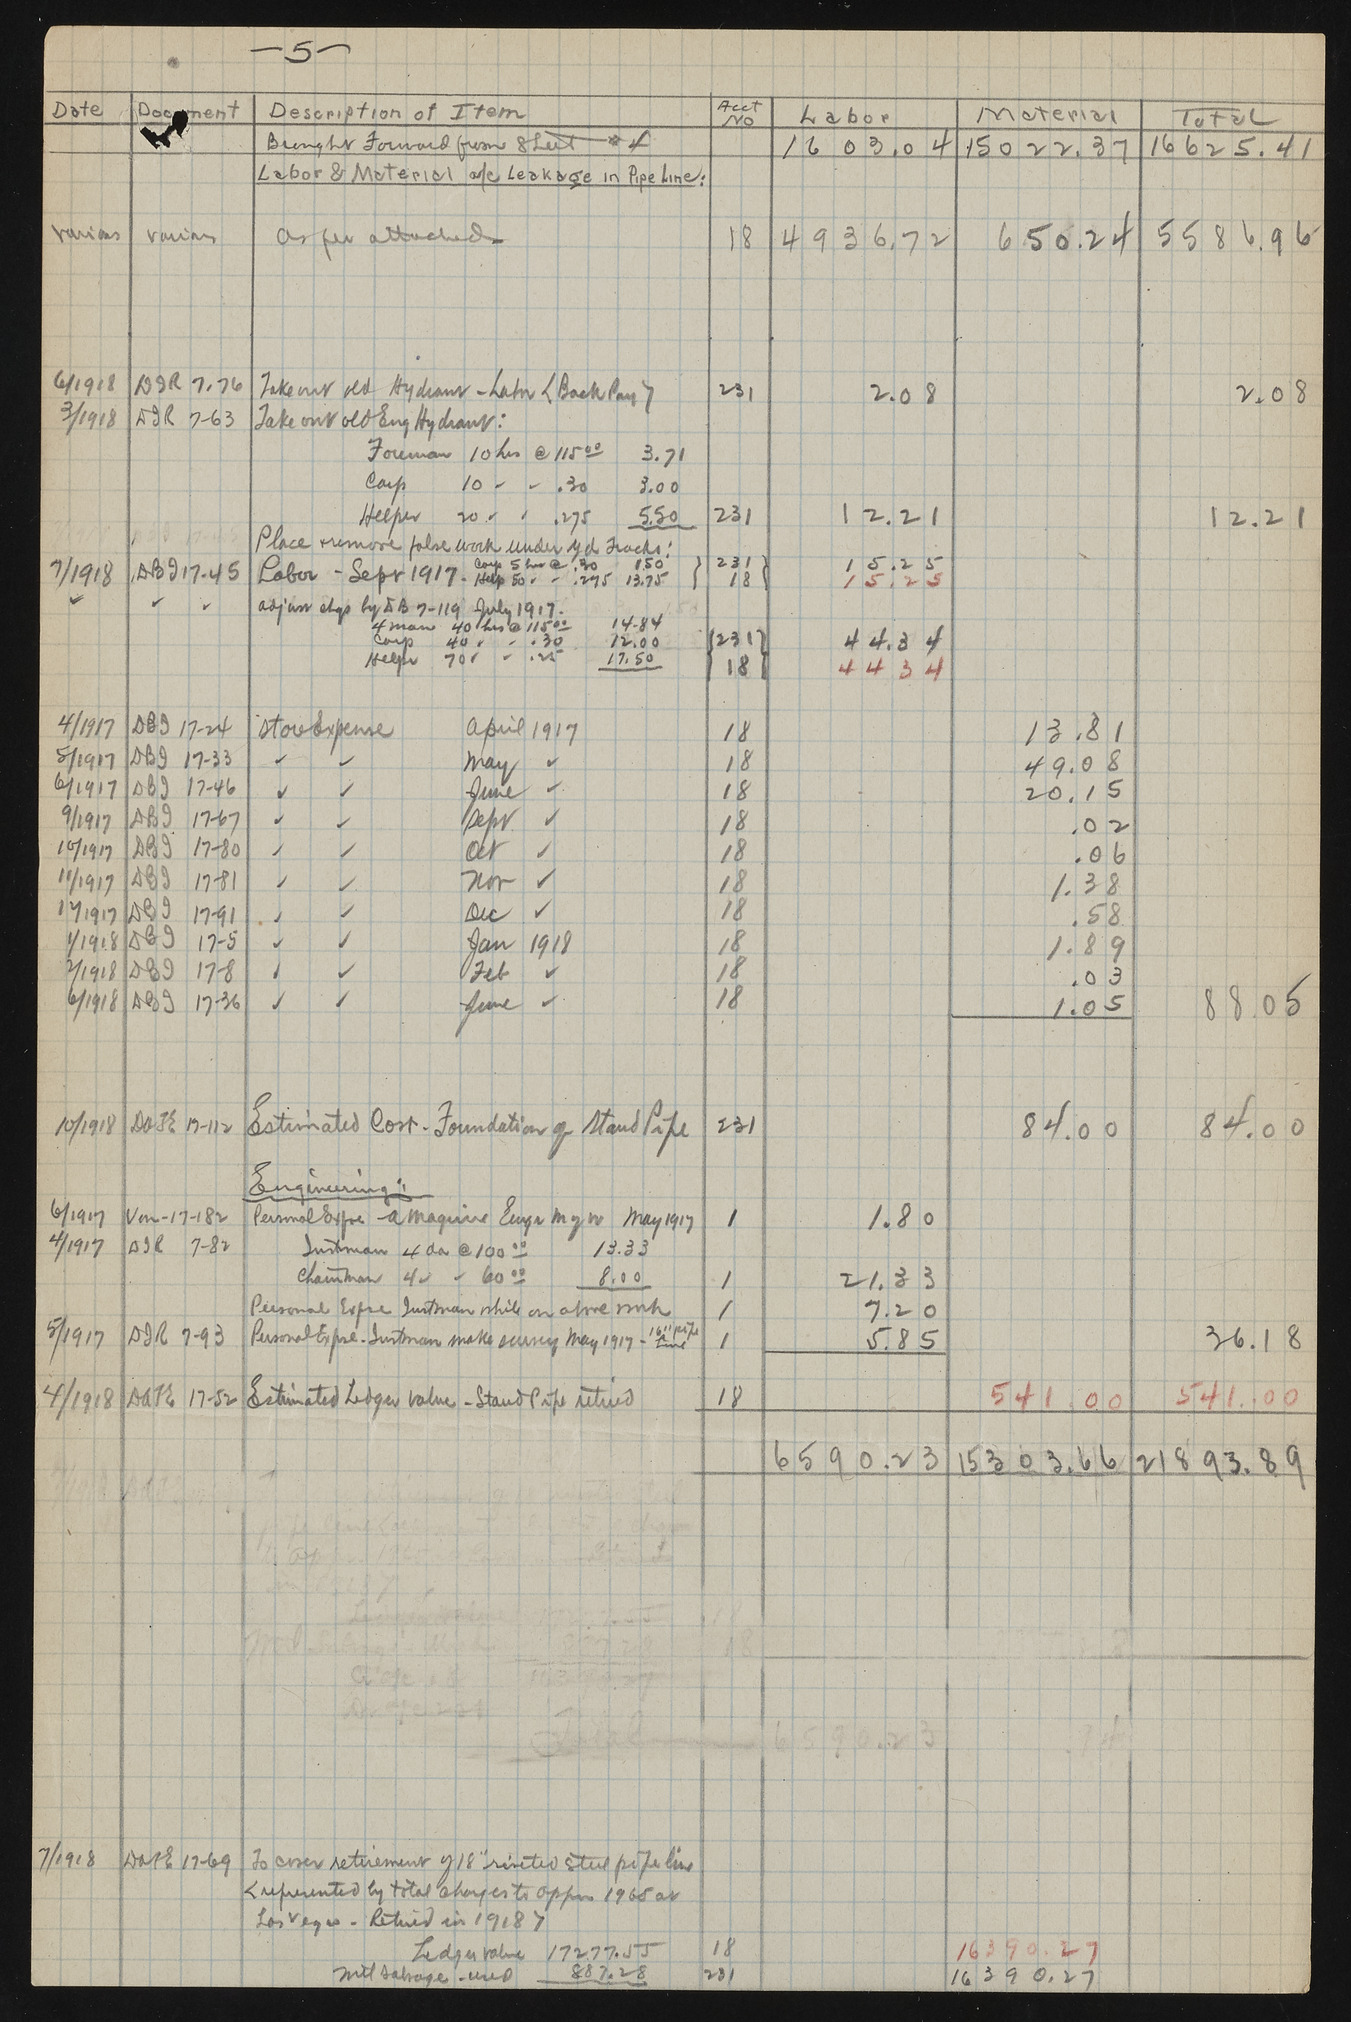 -5-
Date Document Description of Item Acct No Labor Material Total
Brought Forward from Sheet #4 1603.04 15022.37 16625.41
Labor & Material a/c Leakage in Pipe Line:
various various as per attached 18 4936.72 650.24 5586.96
6/1918 DJR 7-76 Take out old Hydrant - Labor (Back Pay) 231 2.08 2.08
3/1918 DJR 7-63 Take out old Eng Hydrant:
Foreman 10 hrs @ 115 00 3.71
Carp 10 " " .30 3.00
Helper 20 " " .275 5.50 231 12.21 12.21
Place & remove false work under yd Tracks:
7/1918 DBJ 17-45 Labor - Sept 1917 - Carp 5 hrs @ .30 1.50 231 15.25
Help 50 " " .275 13.75 18 15.25
" " " adjust chgs by DB 7-119 July 1917.
4 man 40 hrs @ 115 00 14.84
Carp 40 " " .30 12.00 231 44.34
Helpr 70 " " .25 17.50 18 44 34
4/1917 DBJ 17-24 Store Expense April 1917 18 13.81
5/1917 DBJ 17-33 " " May " 18 49.08
6/1917 DBJ 17-46 " " June " 18 20.15
9/1917 DBJ 17-67 " " Sept " 18 .02
10/1917 DBJ 17-80 " " Oct " 18 .06
11/1917 DBJ 17-81 " " Nov " 18 1.38
12/1917 DBJ 17-91 " " Dec " 18 .58
1/1918 DBJ 17-5 " " Jan 1918 18 1.89
2/1918 DBJ 17-8 " " Feb " 18 .03
6/1918 DBJ 17-36 " " June " 18 1.05 88.05
10/1918 17-112 Estimated Cost - Foundation of Stand Pipe 231 84.00 84.00
Engineering:
6/1917 Vou-17-182 Personal Expse - A Maguire Engr M of W May 1917 1 1.80
4/1917 DJR 7-82 Instman 4 da @ 100 00 13.33
Chainman 4 " " 60 00 8.00 1 21.33
Personal Expse Instman while on above work 1 7.20
5/1917 DJR 7-93 Personal Expse - Instman make survey May 1917 - 16" pipe line 1 5.85 36.18
4/1918 17-52 Estimated Ledger value - Stand Pipe retired 18 541.00 541.00
6590.23 15303.66 21893.89
Total 6590.23
7/1918 17-69 To cover retirement of 18" riveted steel pipe line
(represented by total charges to appn 1965 at
Las Vegas - Retired in 1918)
Ledger value 17277.55 18 16390.27
Mtl Salvage - used 887.28 231 16390.27